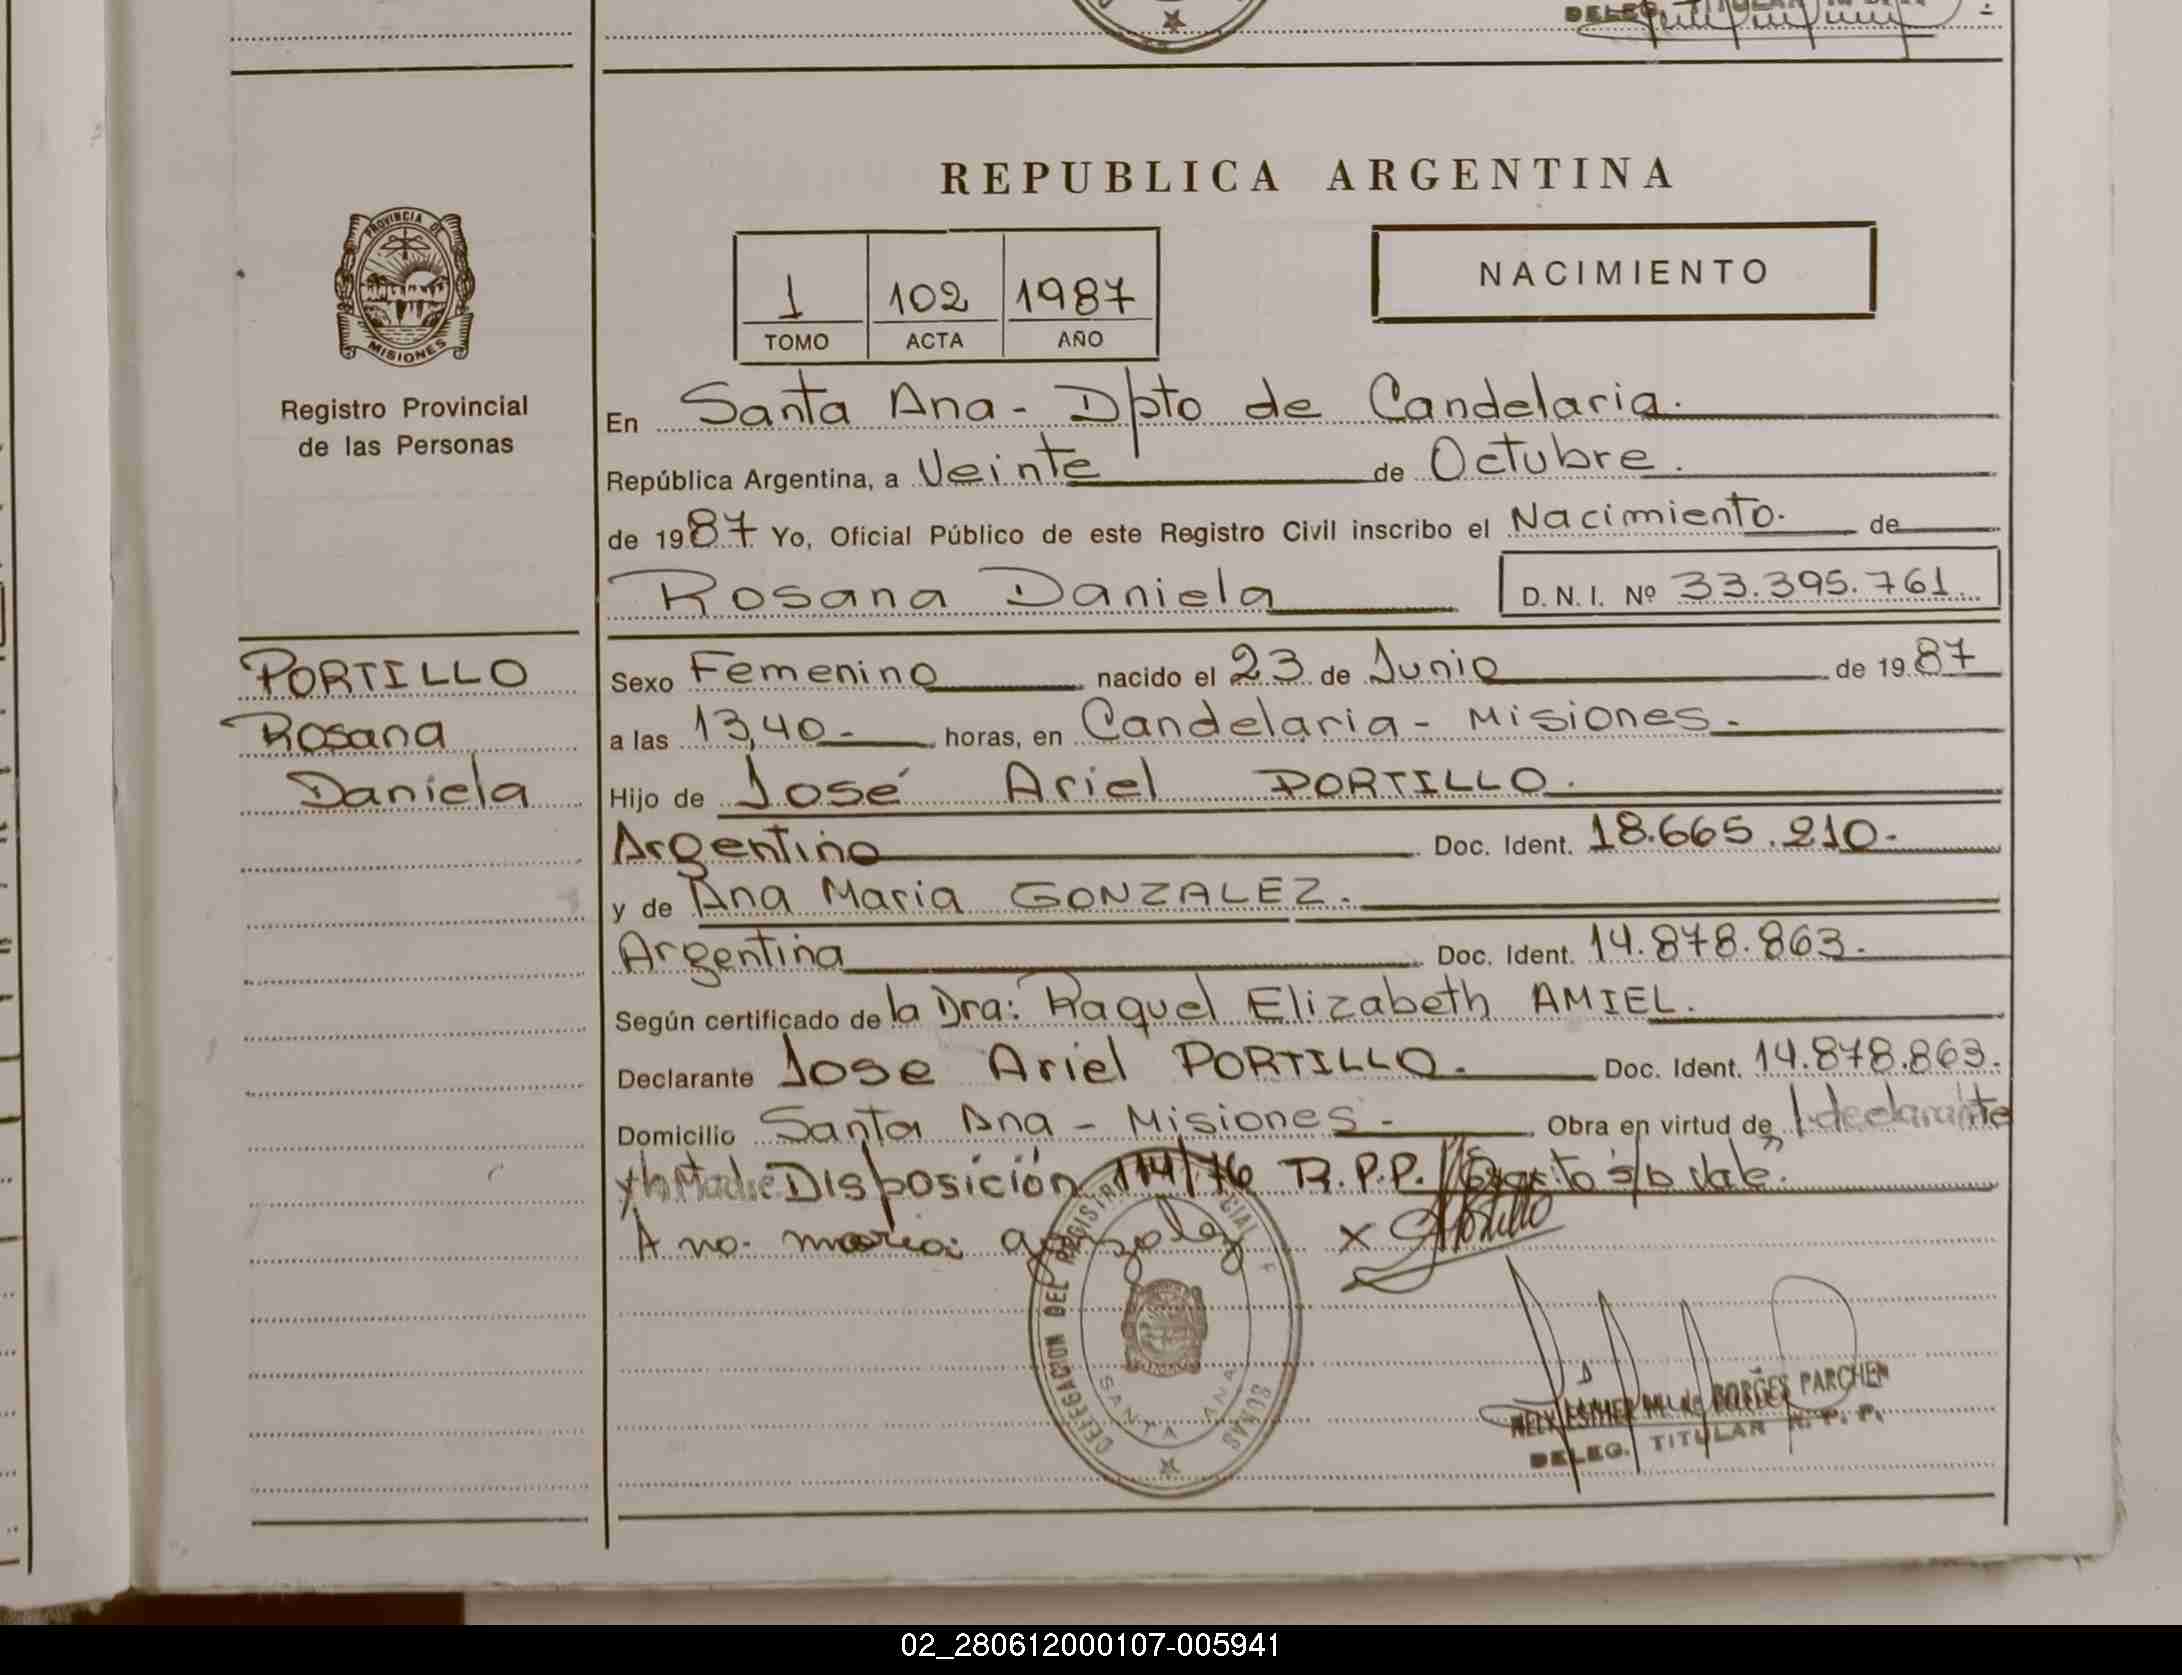 DELEG. TITULAR
REPUBLICA ARGENTINA
PROVINCIA DE
MISIONES
Registro Provincial
de las Personas
1 102 1987
TOMO ACTA AÑO
NACIMIENTO
En Santa Ana - Dpto de Candelaria.
República Argentina, a Veinte de Octubre.
de 1987 Yo, Oficial Público de este Registro Civil inscribo el Nacimiento. de
Rosana Daniela D.N.I. Nº 33.395.761
PORTILLO
Rosana
Daniela
Sexo Femenino nacido el 23 de Junio de 1987
a las 13,40 - horas, en Candelaria - Misiones -
Hijo de José Ariel PORTILLO.
Argentino Doc. Ident. 18.665.210-
y de Ana Maria GONZALEZ.
Argentina Doc. Ident. 14.878.863.
Según certificado de la Dra: Raquel Elizabeth AMIEL.
Declarante Jose Ariel PORTILLO. Doc. Ident. 14.878.863.
Domicilio Santa Ana - Misiones - Obra en virtud de l declarante
y la Madre Disposición 114/76 R.P.P. s/b vale".
Ana maria gonzalez x Portillo
DELEGACION DEL REGISTRO
SANTA ANA
BORGES PARCHEN
DELEG. TITULAR R. P. P.
02_280612000107-005941